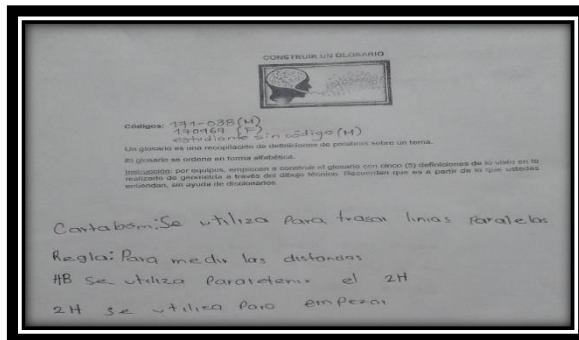 CONSTRUIR UN GLOSARIO
Códigos: 171-038(M)
170969 (F)
estudiante sin código(M)
Un glosario es una recopilación de definiciones de palabras sobre un tema.
El glosario se ordena en forma alfabética.
Instrucción: por equipos, empiecen a construir el glosario con cinco (5) definiciones de lo visto en lo
realizado de geometría a través del dibujo técnico. Recuerden que es a partir de lo que ustedes
entiendan, sin ayuda de diccionarios.
Cartabom: Se utiliza Para trasar linias Paralelas
Regla: Para medir las distansias
HB se utiliza Para el 2H
2H se utiliza Para empezar